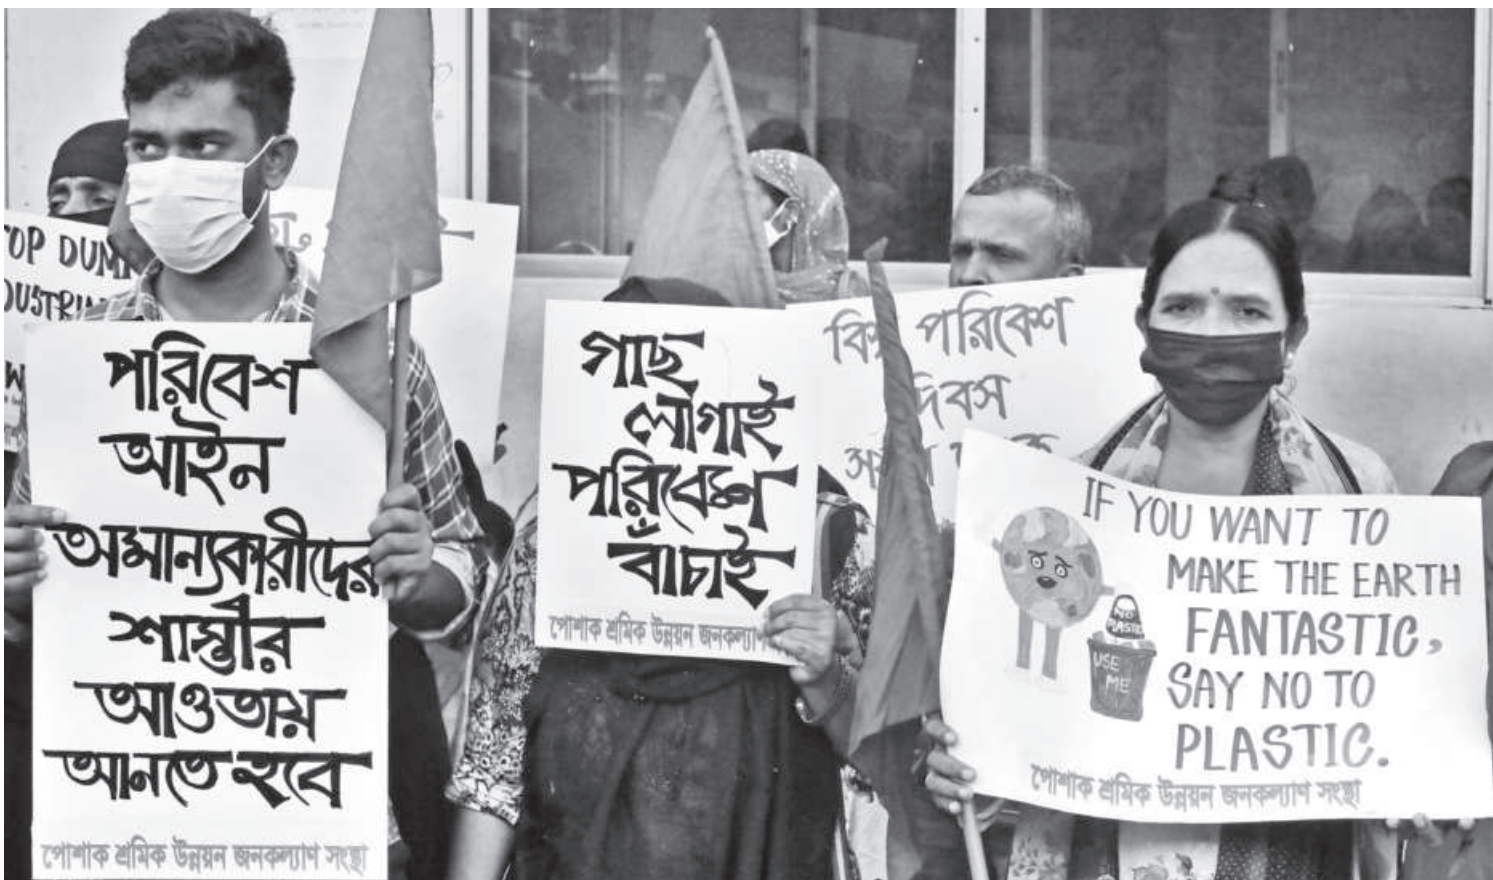 পরিবেশ
আইন
অমান্যকারীদের
শাস্তীর
আওতায়
আনতে হবে
পোশাক শ্রমিক উন্নয়ন জনকল্যাণ সংস্থা
গাছ
লাগাই
পরিবেশ
বাঁচাই
পোশাক শ্রমিক উন্নয়ন জনকল্যাণ
পরিবেশ
দিবস
IF YOU WANT TO
MAKE THE EARTH
FANTASTIC,
SAY NO TO
PLASTIC.
NO
PLASTIC
USE
ME
পোশাক শ্রমিক উন্নয়ন জনকল্যাণ সংস্থা